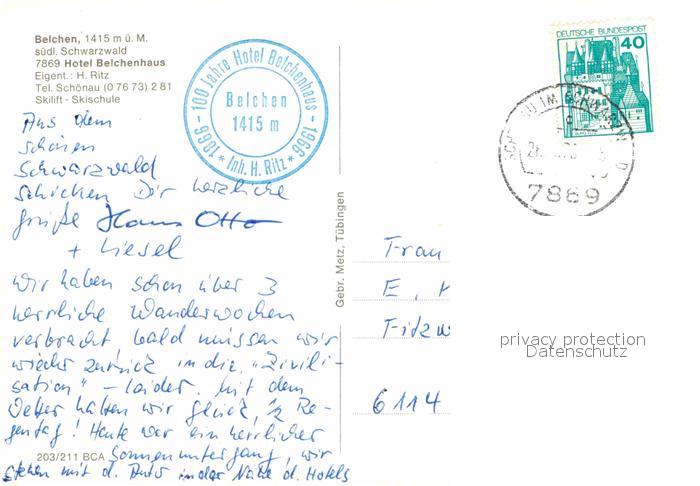 Belchen, 1415 m ü. M.
südl. Schwarzwald
7869 Hotel Belchenhaus
Eigent.: H. Ritz
Tel. Schönau (0 76 73) 2 81
Skilift - Skischule
1866 - 100 Jahre Hotel Belchenhaus - 1966
Belchen
1415 m
* Inh. H. Ritz *
DEUTSCHE BUNDESPOST
40
7869
Aus dem
schönen
Schwarzwald
schicken Dir herzliche
Grüße Hans Otto
+ Liesel
Wir haben schon über 3
herrliche Wanderwochen
verbracht bald müssen wir
wieder zurück in die "Zivili-
sation" - leider. Mit dem
Wetter hatten wir Glück, 1/2 Re-
gentag! Heute war ein herrlicher
Sonnenuntergang, wir
stehen mit d. Auto in der Nähe d. Hotels
203/211 BCA
Gebr. Metz, Tübingen
Frau
E.
6114
privacy protection
Datenschutz